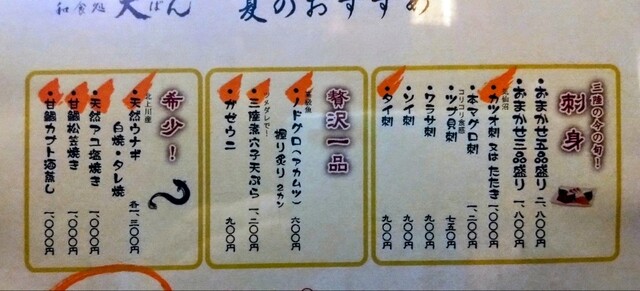 和食処 天ぱん 夏のおすすめ
三陸の今の旬!
刺身
・おまかせ五品盛り 二、八〇〇円
・おまかせ三品盛り 一、八〇〇円
気仙沼
・カツオ刺 又は たたき 一、〇〇〇円
・本マグロ刺 一、二〇〇円
コリコリ食感
・ツブ貝刺 七五〇円
・ワラサ刺 九〇〇円
・ソイ刺 九〇〇円
・タイ刺 九〇〇円
贅沢一品
高級魚
・ノドグロ(アカムツ)
握り炙り 2カン 六〇〇円
・三陸煮穴子天ぷら 一、二〇〇円
・かぜウニ 九〇〇円
希少!
北上川産
・天然ウナギ
白焼・タレ焼 各一、三〇〇円
・天然アユ塩焼き 一、〇〇〇円
・甘鯛松笠焼き 一、〇〇〇円
・甘鯛カブト酒蒸し 一、〇〇〇円